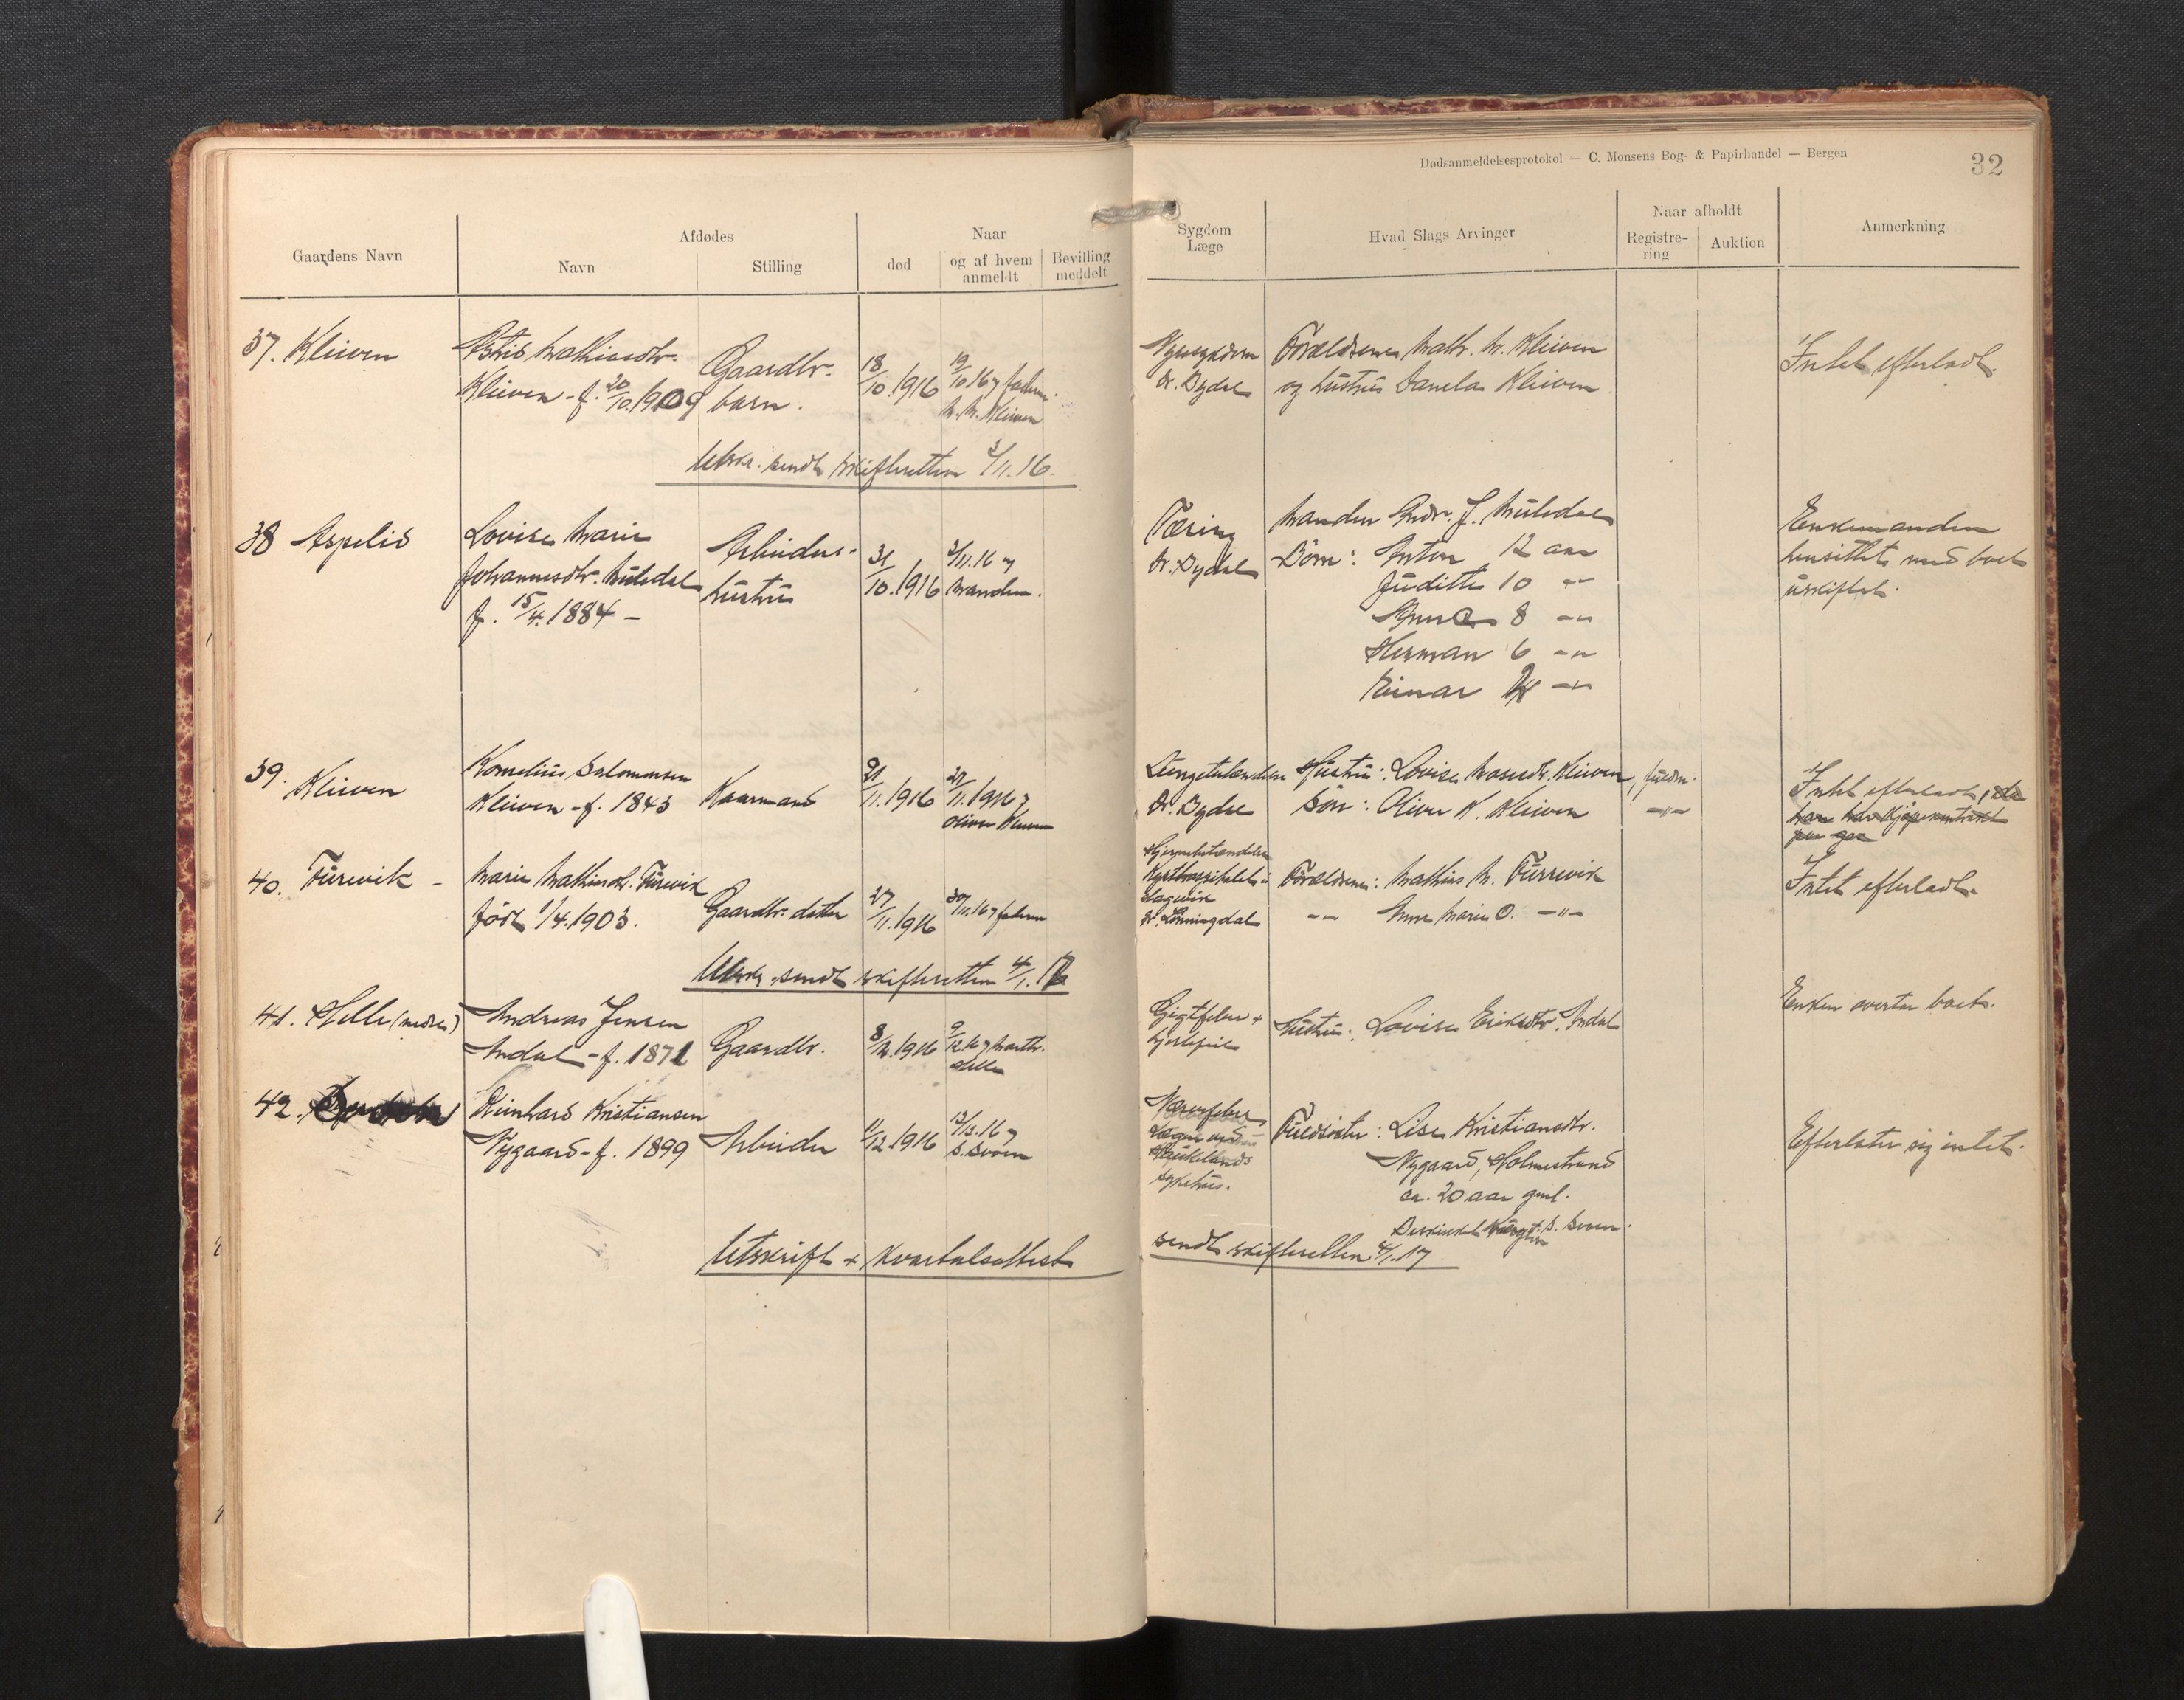 Dødsanmeldelsesprotokol — C. Monsens Bog- & Papirhandel — Bergen
32
Gaardens Navn
Afdødes
Navn
Stilling
Naar
død
og af hvem anmeldt
Bevilling meddelt
Sygdom Læge
Hvad Slags Arvinger
Naar afholdt
Registre-ring
Auktion
Anmerkning
37. Kleiven
Kleiven - f. 20/10.1909
Gaardbr.
barn.
18/10.1916
19/10 16 faderen
M. M. Kleiven
Dr. Dydal
Forældrene Math. M. Kleiven
og hustru Kleiven
Intet efterladt.
Utskr. sendt skifteretten 3/11.16.
38 Aspelid
Lovise Marie
Johannesdtr. Muledal
f. 15/4.1884 -
Arbeider-
hustru
31/10.1916
3/11.16 af
manden.
Tæring
Dr. Dydal
Manden Andr. J. Muledal
Börn: Anton 12 aar
Juditte 10 -"-
Anna 8 -"-
Herman 6 -"-
Einar -"-
Enkemanden
hensitter med boet
uskiftet.
39. Kleiven
Kornelius Salomonsen
Kleiven - f. 1843
Kaarmand
21/11.1916
27/11.1916
Oliver Kleiven
Lungebetændelse
Dr. Dydal
Hustru: Lovise Kleiven, fuldm.
Sön: Oliver K. Kleiven -"-
Intet efterladt,
40. Furevik -
Marie Mathiasdtr. Furevik
født 1/4.1903.
Gaardbr. datter
27/11.1916
30/11.16 faderen
Hjernebetændelse
Kysthospitalet i
Hagevik
Dr. Lönningdal
Forældrene: Mathias M. Furrevik
-"- Anne Marie O. -"-
Intet efterladt.
Utskr. sendt skifteretten 4/1.17
41. Helle (nedre)
Andreas Jensen
Indal - f. 1871
Gaardbr.
8/12.1916
9/12 16
Helle
Gigtfeber +
hjertefeil
Hustru: Lovise Eriksdtr. Indal
Enken overtar boet.
42.
Reinhard Kristiansen
Nygaard - f. 1899
Arbeider
11/12 1916
13/12.16
Nervefeber
Haukelands
sykehus.
Fuldsöster: Lise Kristiansdtr.
Nygaard, Holmestrand
ca. 20 aar gml.
Efterlater sig intet.
Utskrift + Kvartalsattest
sendt skifteretten 4/1.17